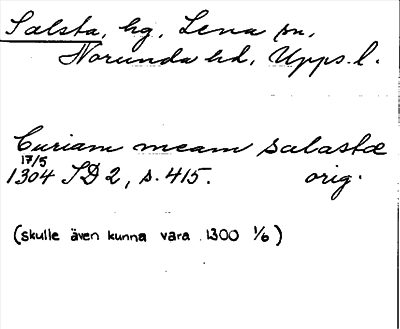 Salsta, hg, Lena sn,
Norunda hd, Upps. l.
Curiam meam salastæ
17/5
1304 SD 2, s. 415. orig.
(skulle även kunna vara 1300 1/6)